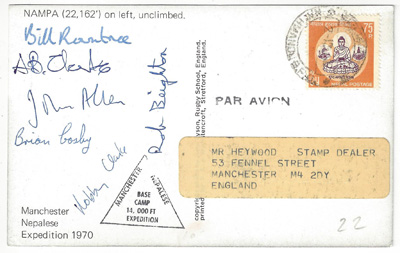 NAMPA (22,162') on left, unclimbed.
Bill Rountree
A.B. Clarke
John Allen
Brian Cosby
Robbie Clarke
Rob Brighton
PAR AVION
75
MR HEYWOOD STAMP DEALER
53 FENNEL STREET
MANCHESTER M4 2DY
ENGLAND
MANCHESTER NEPALESE
BASE
CAMP
14,000 FT
EXPEDITION
Manchester
Nepalese
Expedition 1970
22